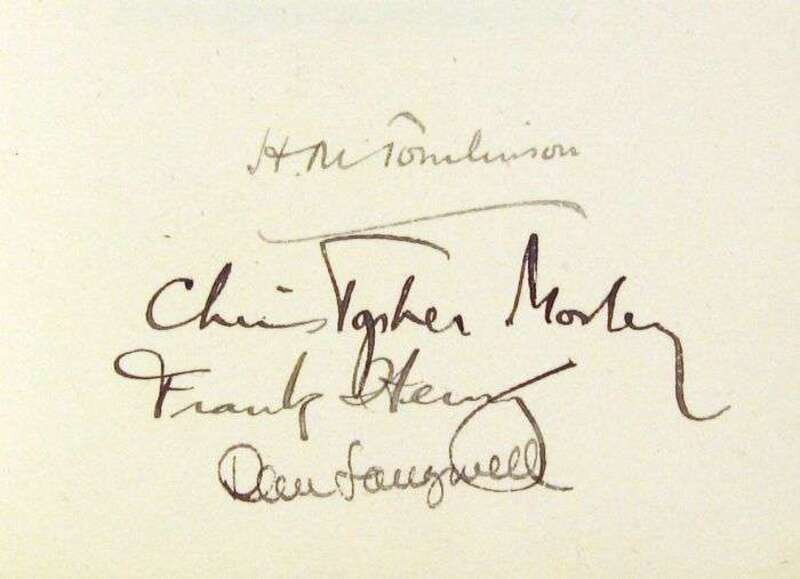 H. M Tomlinson
Christopher Morley
Frank Henry
Dan Longwell